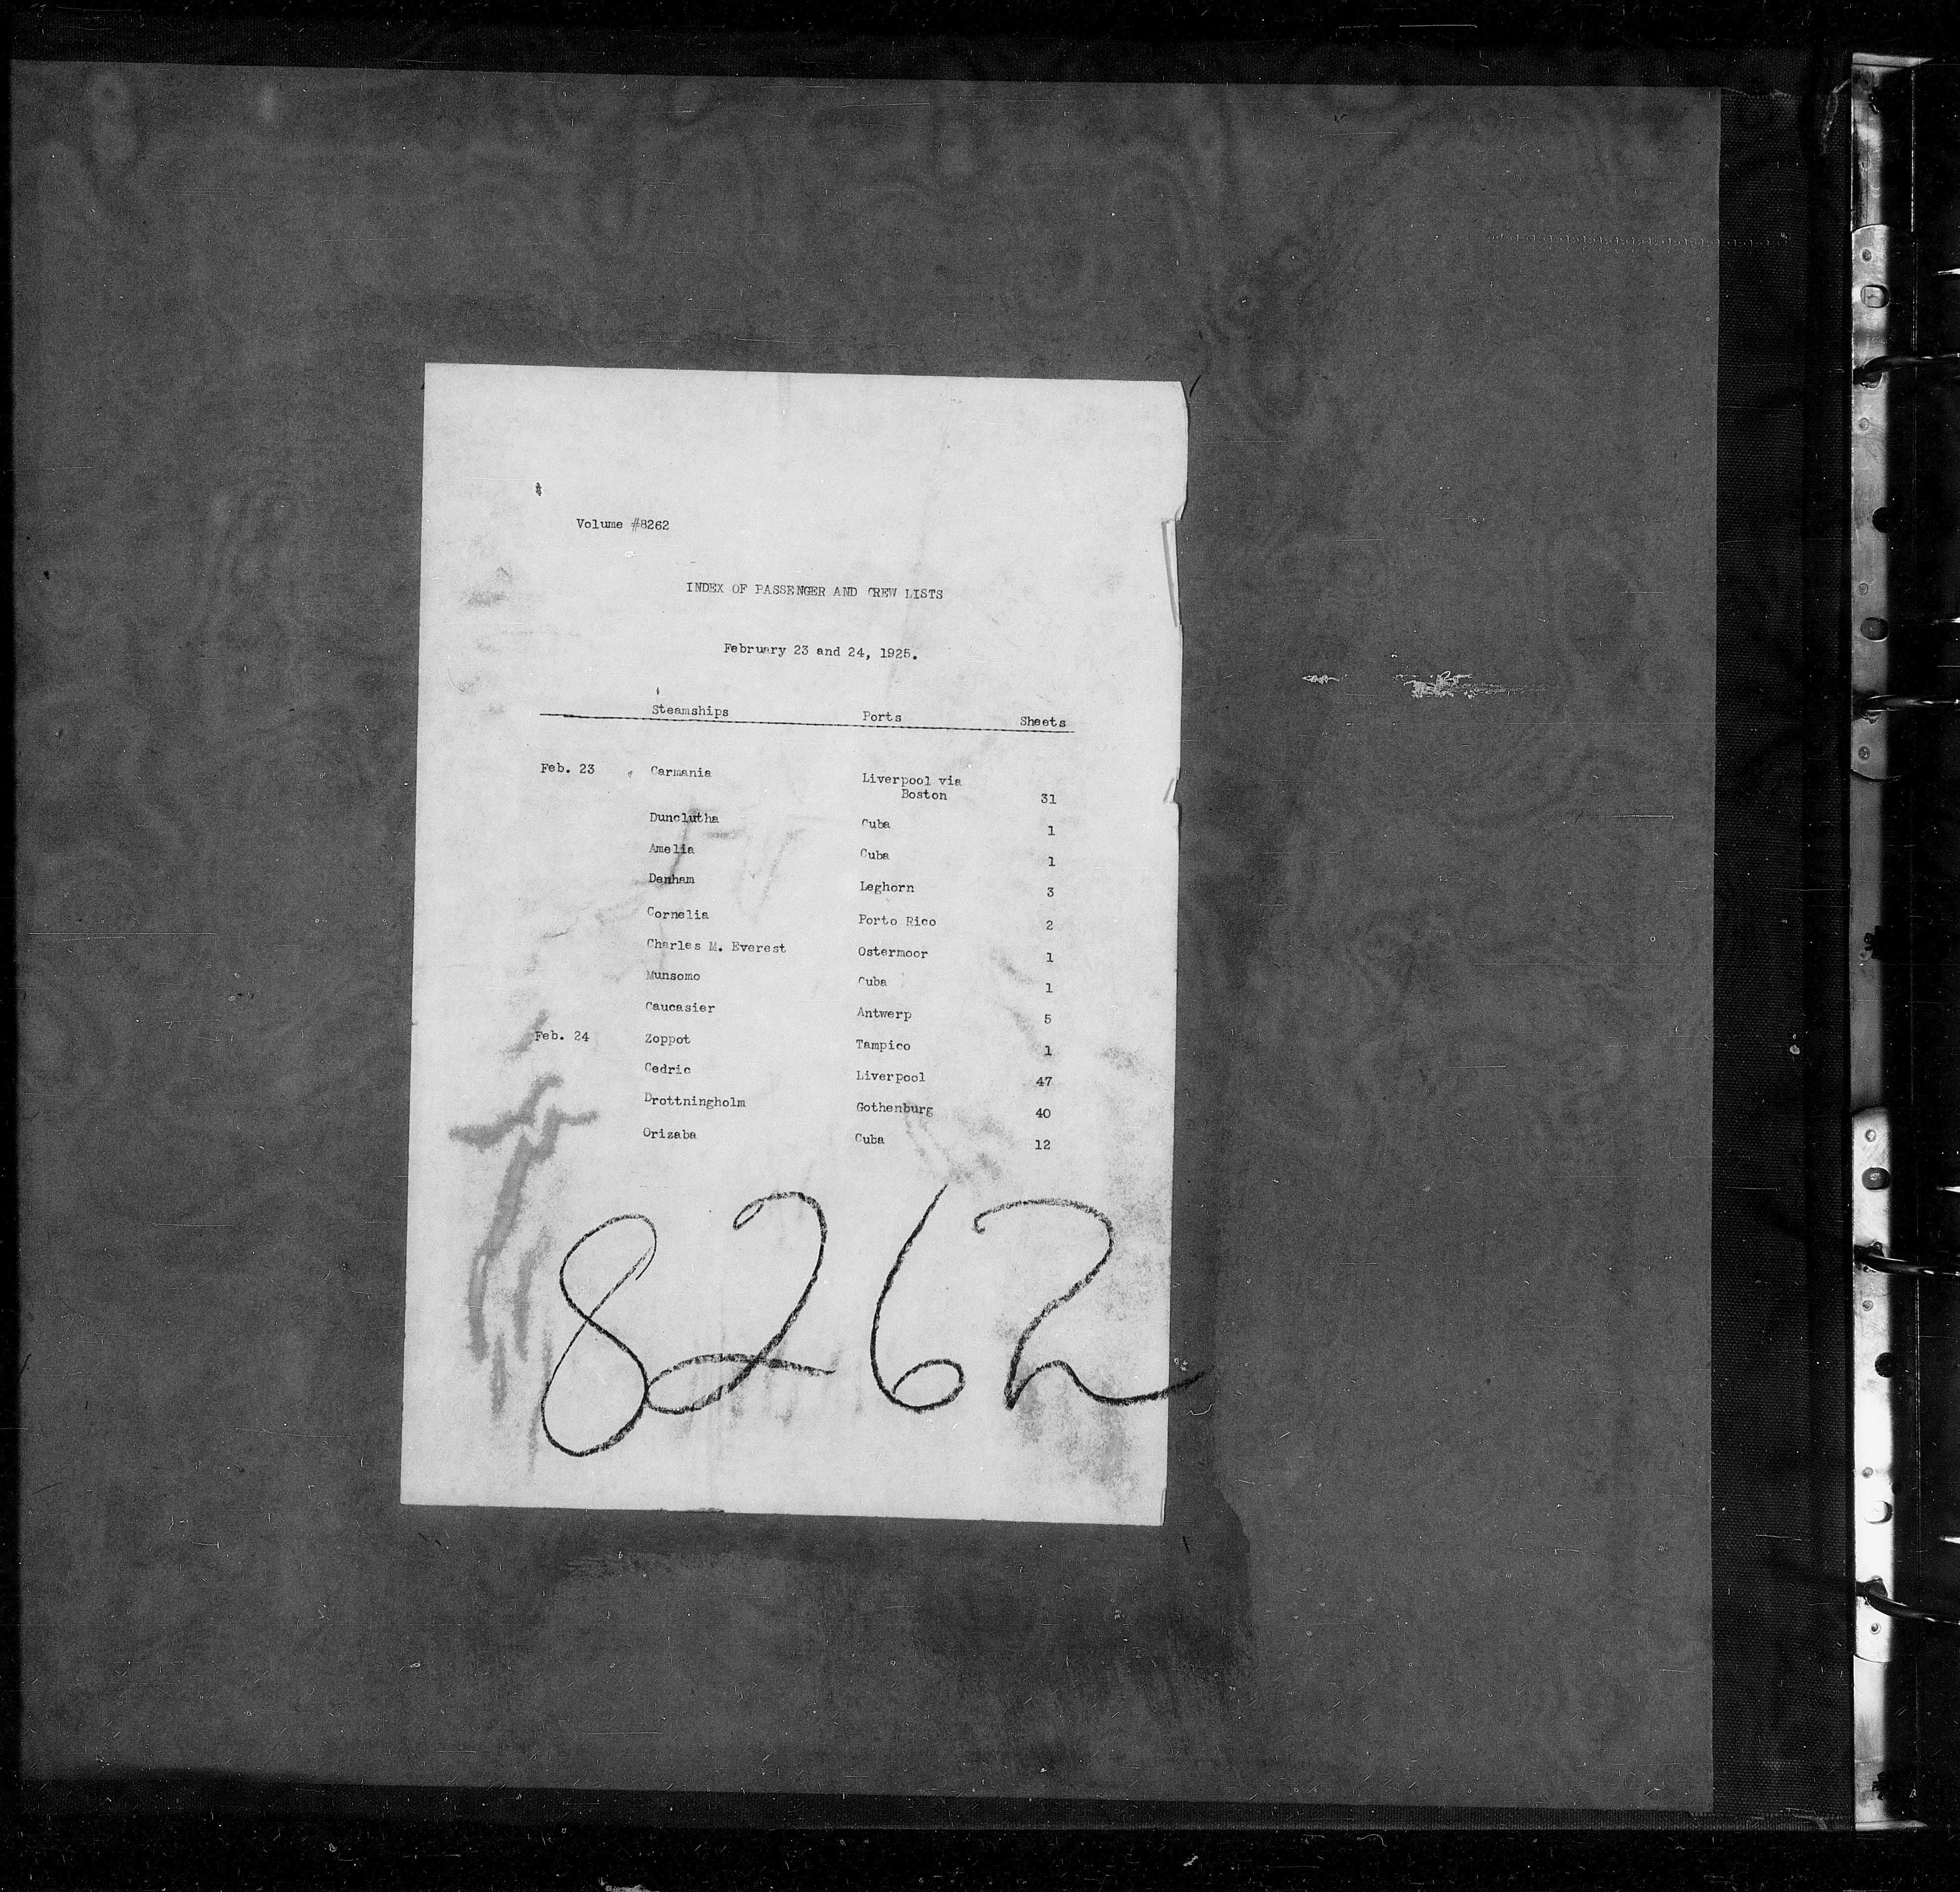 Volume #8262
INDEX OF PASSENGER AND CREW LISTS
February 23 and 24, 1925.
Steamships Ports Sheets
Feb. 23 Carmania Liverpool via
Boston 31
Dunclutha Cuba 1
Amelia Cuba 1
Denham Leghorn 3
Cornelia Porto Rico 2
Charles M. Everest Ostermoor 1
Munsomo Cuba 1
Caucasier Antwerp 5
Feb. 24 Zoppot Tampico 1
Cedric Liverpool 47
Drottningholm Gothenburg 40
Orizaba Cuba 12
8262